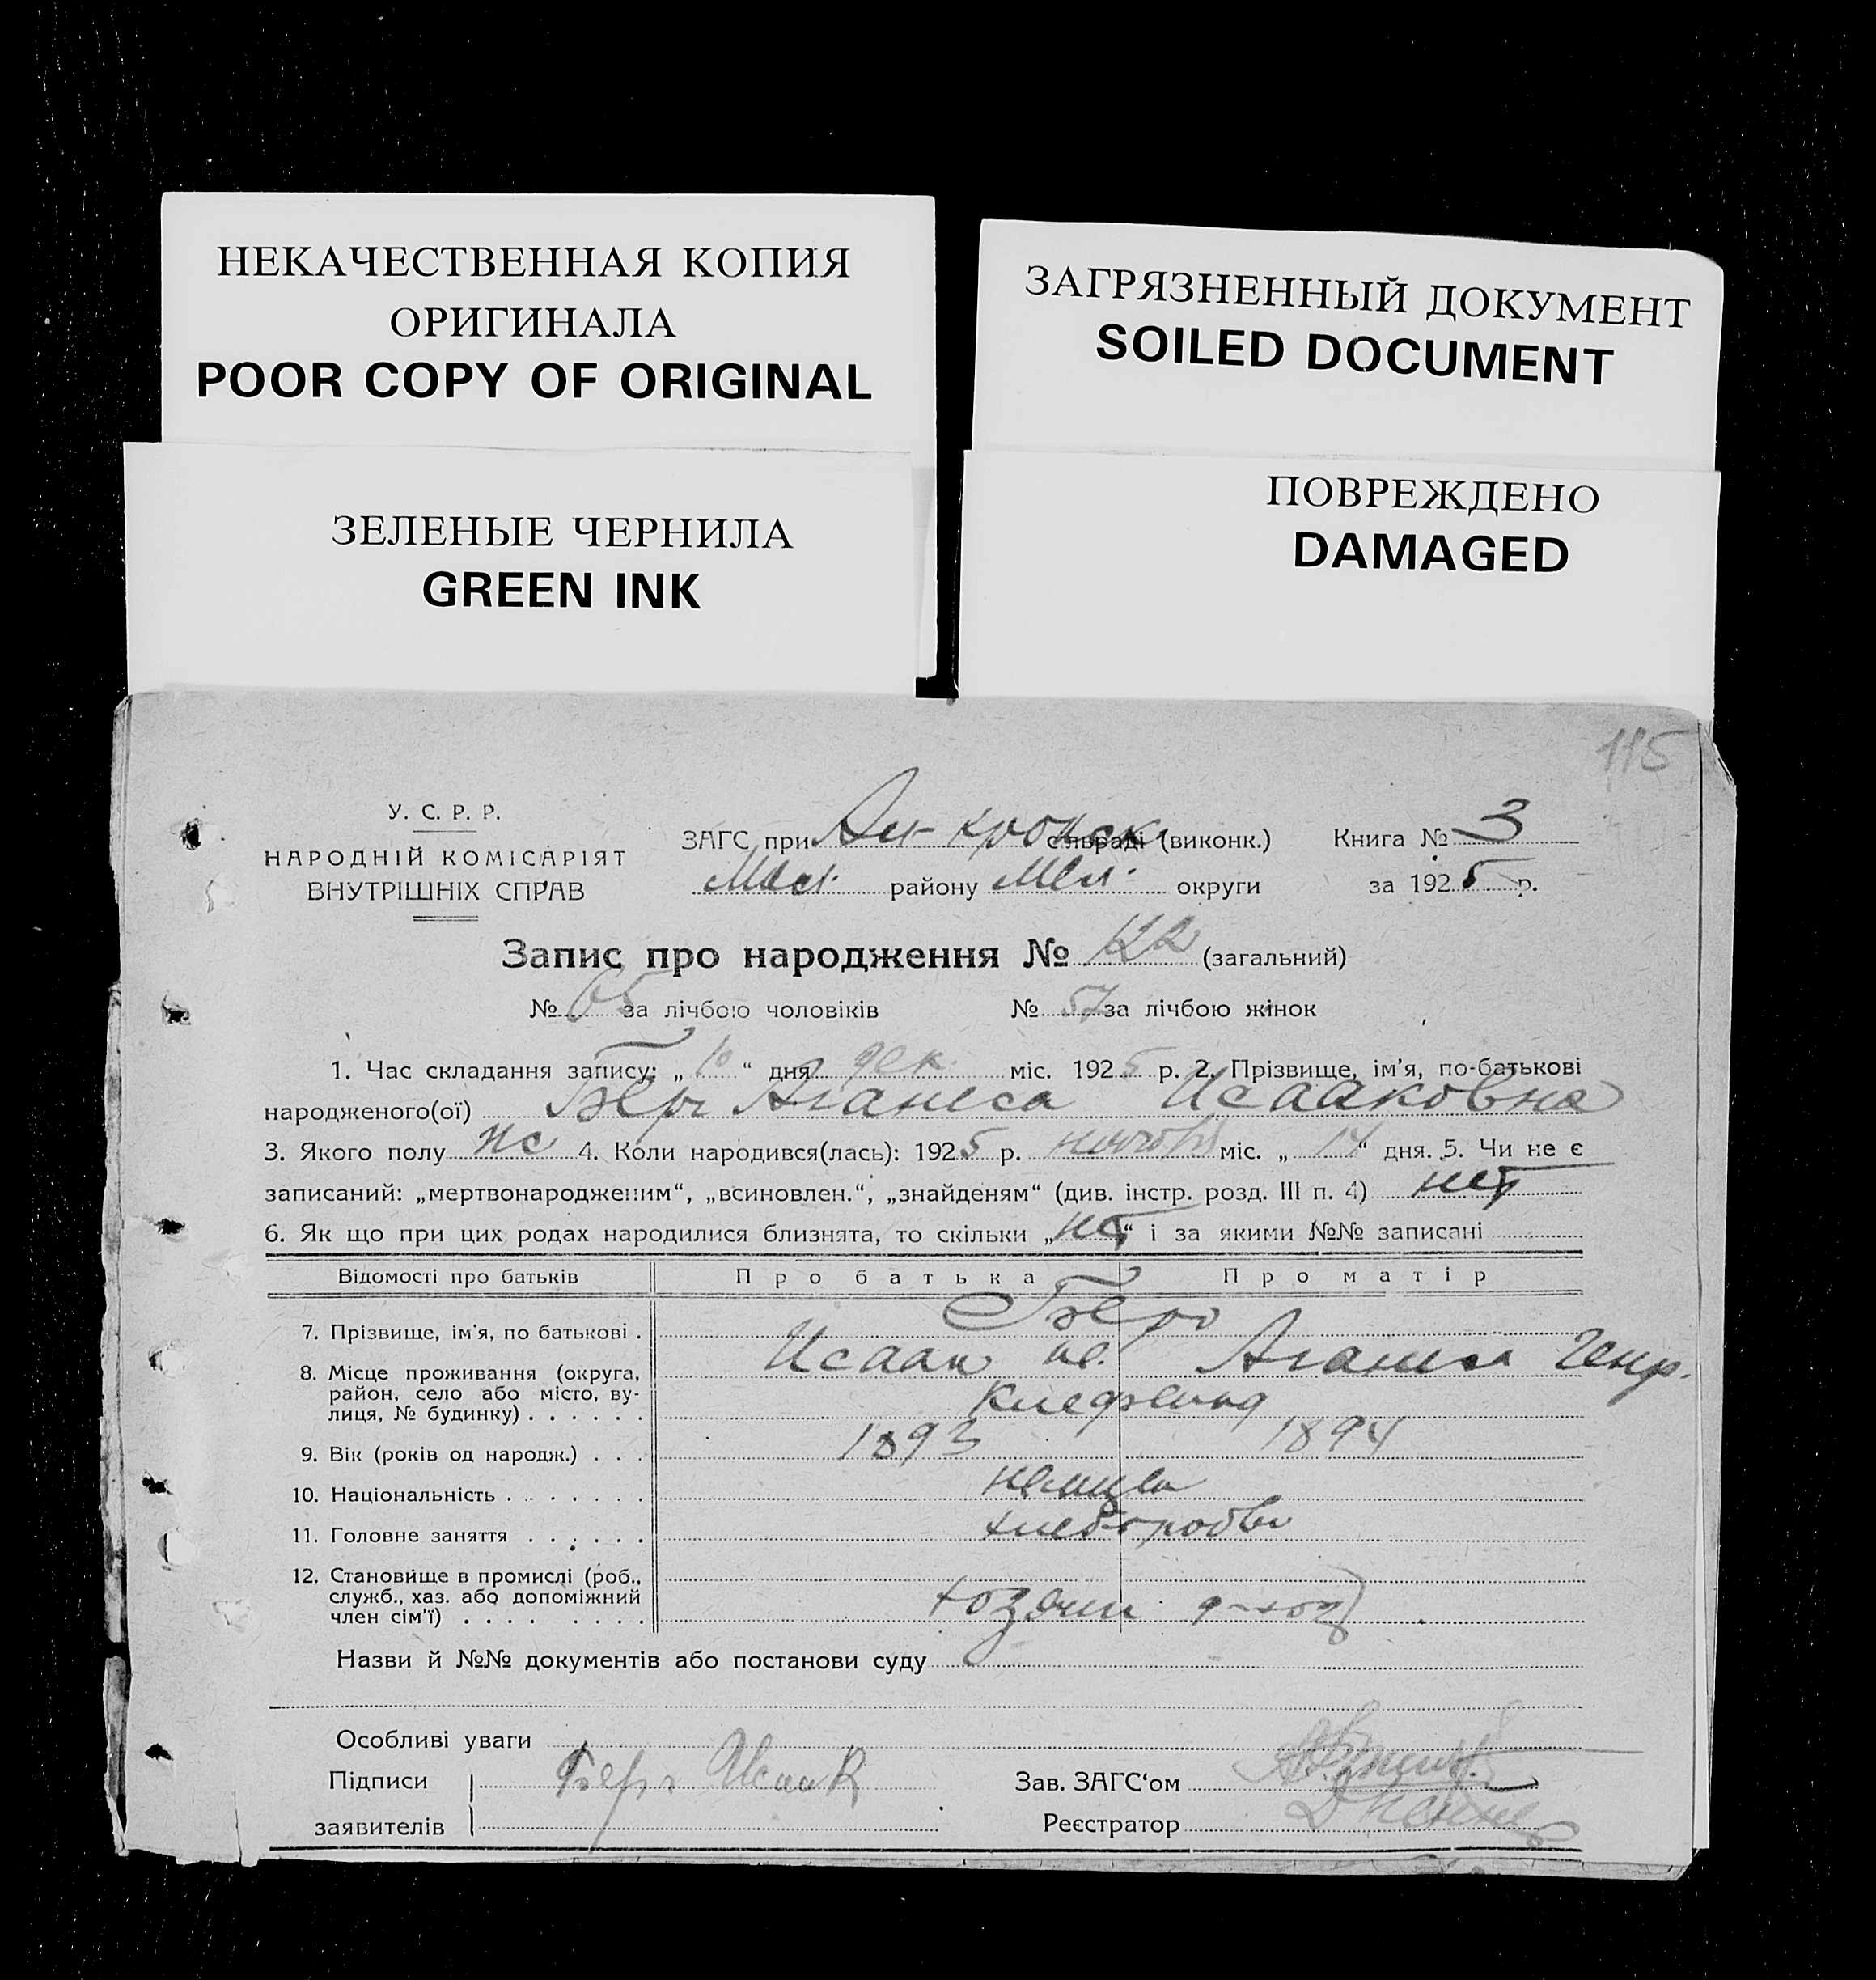 НЕКАЧЕСТВЕННАЯ КОПИЯ
ОРИГИНАЛА
POOR COPY OF ORIGINAL
ЗАГРЯЗНЕННЫЙ ДОКУМЕНТ
SOILED DOCUMENT
ЗЕЛЕНЫЕ ЧЕРНИЛА
GREEN INK
ПОВРЕЖДЕНО
DAMAGED
115
У. С. Р. Р.
НАРОДНІЙ КОМІСАРІЯТ
ВНУТРІШНІХ СПРАВ
ЗАГС при сільраді (виконк.)
району Мел. округи
Книга № 3
за 1925 р.
Запис про народження № 122 (загальний)
№ 65 за лічбою чоловіків № 57 за лічбою жінок
1. Час складання запису: „10“ дня дек. міс. 1925 р. 2. Прізвище, ім'я, по-батькові
народженого(ої) Берг Аганеса Исааковна
3. Якого полу ж 4. Коли народився(лась): 1925 р. ноября міс. „14“ дня. 5. Чи не є
записаний: „мертвонародженим“, „всиновлен.“, „знайденям“ (див. інстр. розд. III п. 4) нет
6. Як що при цих родах народилися близнята, то скільки „нет“ і за якими №№ записані
Відомості про батьків Про батька Про матір
7. Прізвище, ім'я, по батькові . Берг
Исаак Аганеса Генр.
8. Місце проживання (округа,
район, село або місто, ву-
лиця, № будинку) . . . . . . Клефельд
9. Вік (років од народж.) . . . 1893 1894
10. Національність . . . . . . . немцы
11. Головне заняття . . . . . . хлеборобы
12. Становище в промислі (роб.,
служб., хаз. або допоміжний
член сім'ї) . . . . . . . . хозяин д-хоз
Назви й №№ документів або постанови суду
Особливі уваги
Підписи Берг Исаак
заявителів
Зав. ЗАГС‘ом
Реєстратор